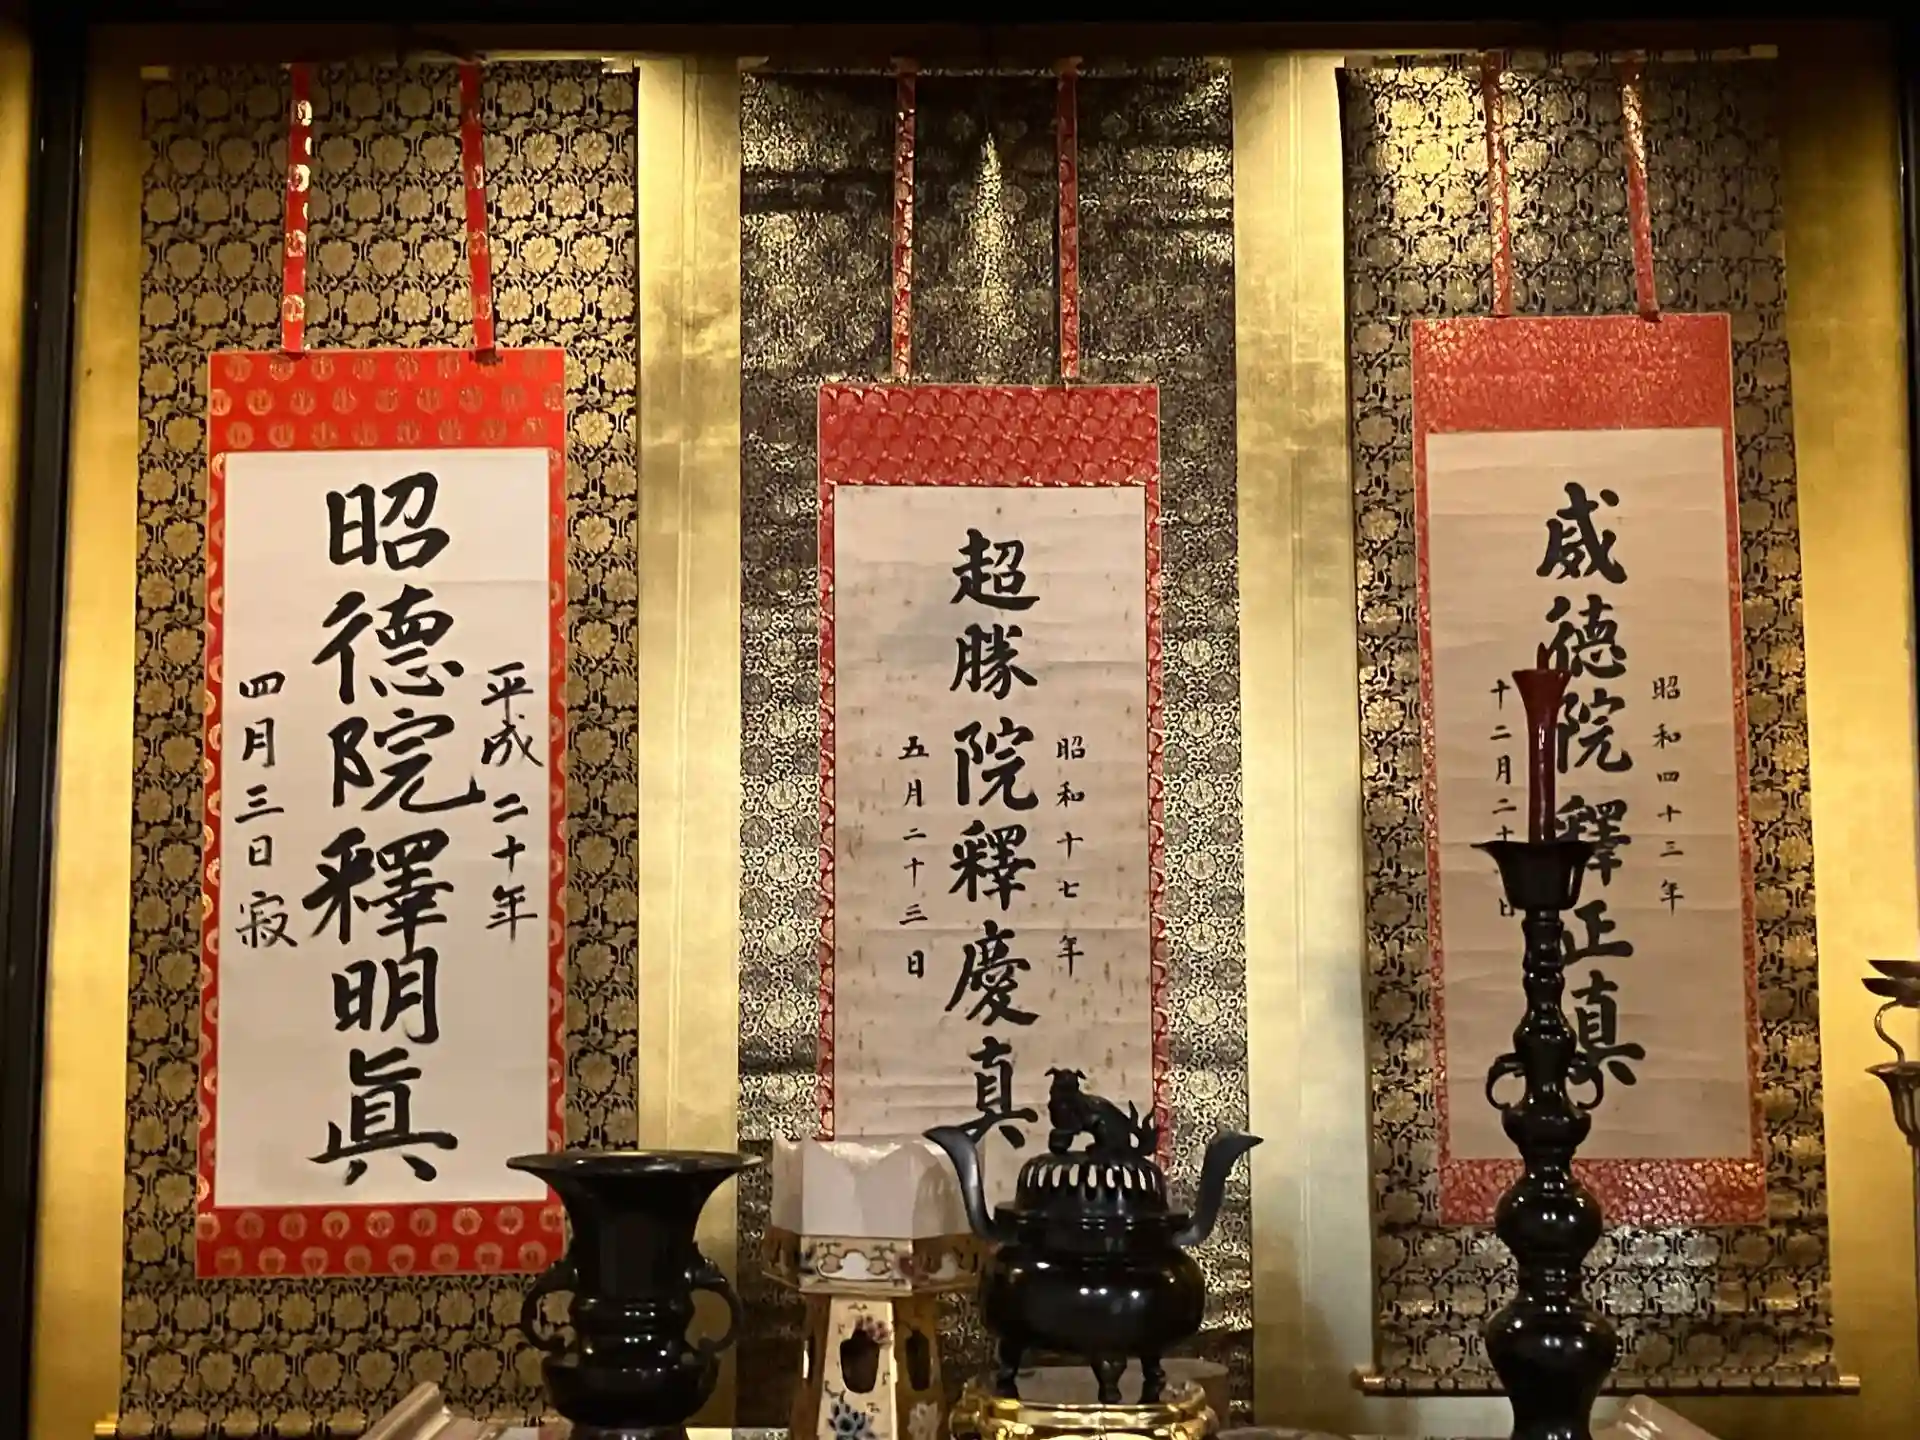 昭和四十三年
威徳院釋正真
十二月二十 日
昭和十七年
超勝院釋慶真
五月二十三日
平成二十年
昭徳院釋明眞
四月三日寂